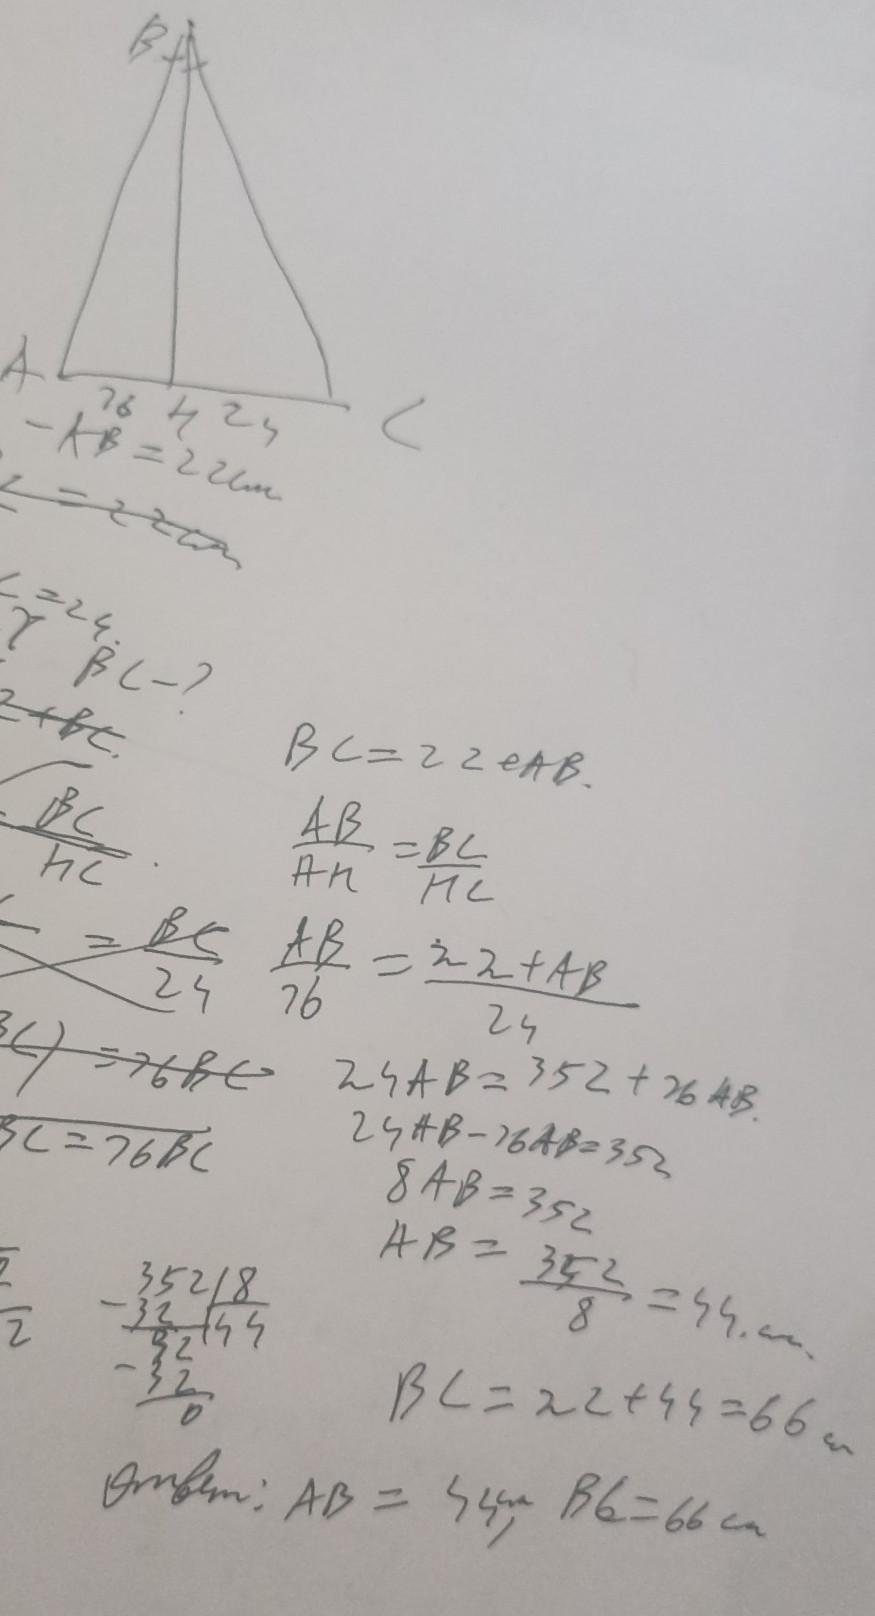 B
A
C
16 H 24
- AB = 22 см
= 22 см
= 24.
BC - ?
2 + BC.
BC = 22 + AB.
BC / HC
AB / AH = BC / HC
= BC / 24
AB / 16 = 22 + AB / 24
BC) = 16 BC
24 AB = 352 + 16 AB.
BC = 16 BC
24 AB - 16 AB = 352
8 AB = 352
AB = 352 / 8 = 44. см.
- 352 | 8
32 | 44
32
- 32
0
BC = 22 + 44 = 66 см
Ответ: AB = 44 см, BC = 66 см